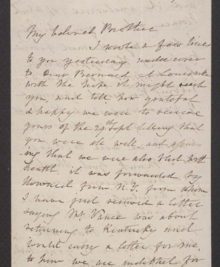 My beloved Brother
I wrote a few lines
to you yesterday, under cover
to
with the hope it might reach
you, and tell how grateful
& happy we were to receive
yours of the 29 Sept telling that
you were all well, and
that we were also
health. it was forwarded by
Howard from N.Y. from whom
I have just received a letter
saying Mr Vance was about
returning to Kentucky and
would carry a letter for me.
to how we are indebted for